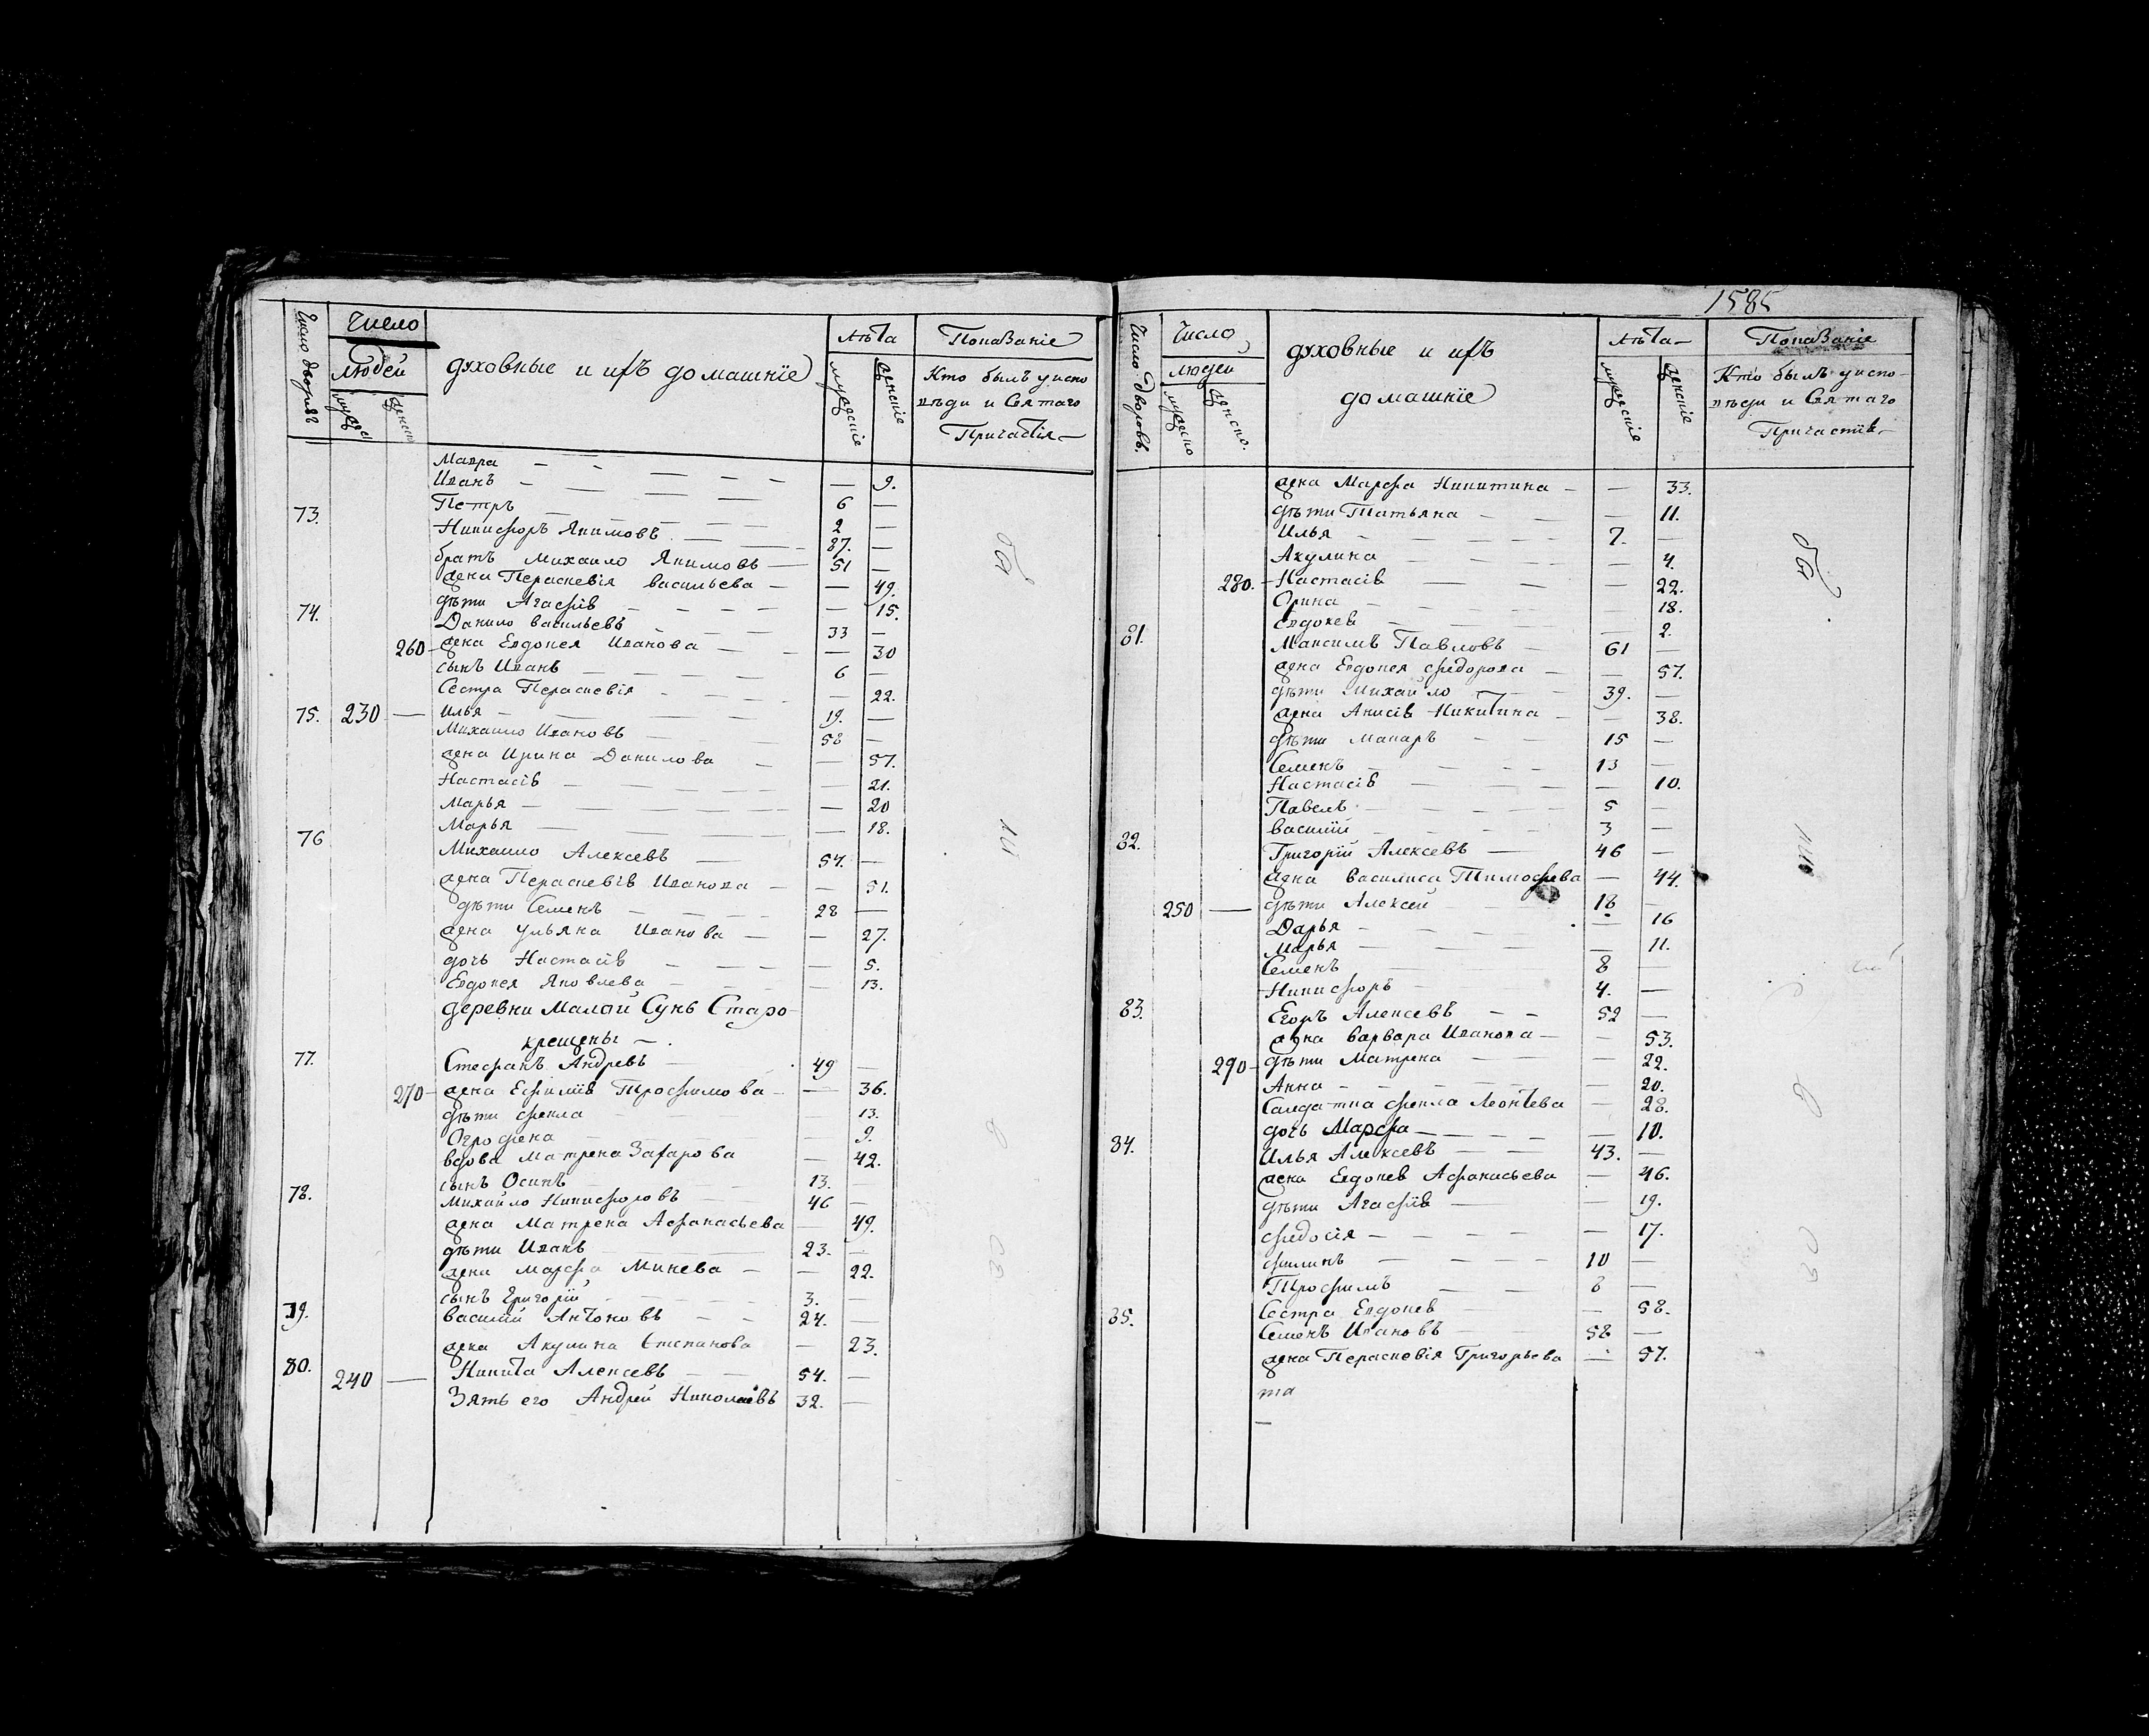 Число дворовъ
Число
людей
мужес
женск
духовные и ихъ домашніе
лѣта
мужескіе
женскіе
Показаніе
Кто былъ у испо
вѣди и Святаго
Причастія —
Мавра — — 9.
Иванъ — 6 —
Петръ — 2 —
73. Никифоръ Якимовъ — 87. —
братъ Михаило Якимовъ — 51 —
жена Пераскевія васильева — — 49.
дѣти Агафія — — 15.
74. Данило васильевъ — 33 —
260 — жена Евдокея Иванова — — 30
сынъ Иванъ — 6 —
Сестра Пераскевія — — 22.
230 — Илья — 19. —
75. Михаило Ивановъ — 58 —
жена Ирина Данилова — — 57.
Настасія — — 21.
Марья — — 20
Марья — — 18.
76 Михаило Алексевъ — 54. —
жена Пераскевія Иванова — — 51.
дѣти Семенъ — 28 —
жена ульяна Иванова — — 27.
дочь Настасія — — 5.
Евдокея Яковлева — — 13.
деревни Малой Сунь Старо
крещены — .
77. Стефанъ Андревъ — 49 —
270 — жена Ефимія Трофимова — — 36.
дѣти фекла — 13.
Огрофена — — 9.
вдова Матрена Захарова — 42.
сынъ Осипъ — 13. —
78. Михайло Никифоровъ — 46 —
жена Матрена Афанасьева — 49.
дѣти Иванъ — 23. —
жена Марфа Микева — — 22.
сынъ Григорій — 3. —
79. василій Антоновъ — 24. —
жена Акулина Степанова — 23.
80. 240 — Никита Алексевъ — 54. —
Зять его Андрей Николаевъ 32. —
1585
Число дворовъ.
Число
людей
мужеско
женско.
духовные и ихъ
домашніе
лѣта —
мужескіе
женскіе
Показаніе
Кто былъ у испо-
вѣди и Святаго
Причастія —
жена Марфа Никитина — — 33.
дѣти Татьяна — — 11.
Илья — 7. —
Акулина — — 4.
280. — Настасія — — 22.
Орина — — 18.
Евдокея — — 2.
81. Максимъ Павловъ — 61 —
жена Евдокея федорова — — 57.
дѣти Михайло — 39. —
жена Анисія Никитина — — 38.
дѣти Макаръ — 15 —
Семенъ — 13 —
Настасія — — 10.
Павелъ — 5 —
василій — 3 —
82. Григорій Алексевъ — 46 —
жена василиса Тимофева — 44.
250 — дѣти Алексей — 18 —
Дарья — — 16
Марья — — 11.
Семенъ — 8 —
Никифоръ — 4. —
83. Егоръ Алексевъ — 52 —
жена варвара Иванова — — 53.
290 — дѣти Матрена — — 22.
Анна — — 20.
Салдатка фекла Леонтева — 28.
дочь Марфа — — 10.
84. Илья Алексевъ — 43. —
жена Евдокея Афанасьева — 46.
дѣти Агафія — — 19.
федосія — — 17.
филипъ — 10 —
Трофимъ — 8 —
Сестра Евдокея — — 58.
85. Семенъ Ивановъ — 58 —
жена Пераскевія Григорьева — 57.